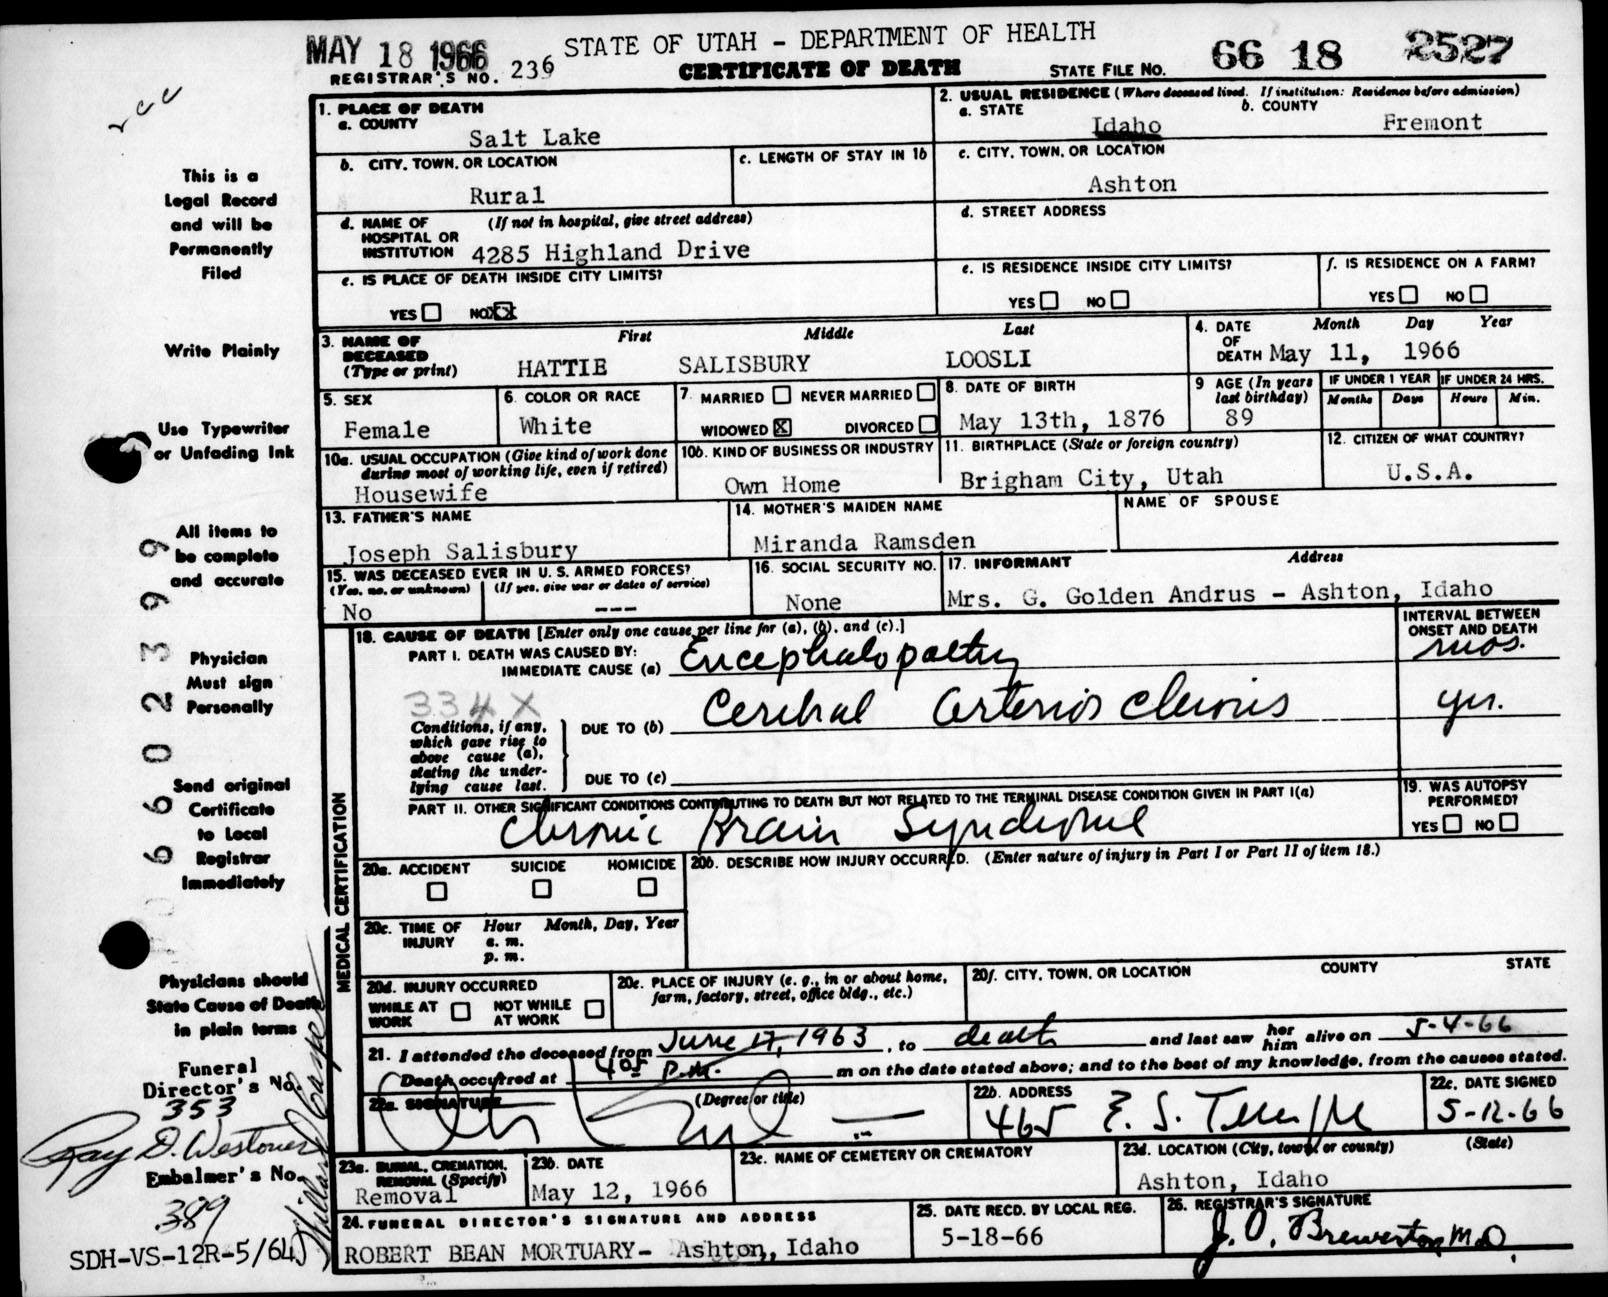 MAY 18 1966
STATE OF UTAH - DEPARTMENT OF HEALTH
66 18 2527
REGISTRAR'S NO. 236
CERTIFICATE OF DEATH
STATE FILE NO.
This is a
Legal Record
and will be
Permanently
Filed
Write Plainly
Use Typewriter
or Unfading Ink
All items to
be complete
and accurate
Physician
Must sign
Personally
Send original
Certificate
to Local
Registrar
Immediately
Physicians should
State Cause of Death
in plain terms
Funeral
Director's No.
353
Ray D. Westover
Embalmer's No.
389
SDH-VS-12R-5/64
66 023999
1. PLACE OF DEATH
a. COUNTY
Salt Lake
2. USUAL RESIDENCE (Where deceased lived. If institution: Residence before admission)
a. STATE b. COUNTY
Idaho Fremont
b. CITY, TOWN, OR LOCATION
Rural
c. LENGTH OF STAY IN 1b
c. CITY, TOWN, OR LOCATION
Ashton
d. NAME OF (If not in hospital, give street address)
HOSPITAL OR
INSTITUTION 4285 Highland Drive
d. STREET ADDRESS
e. IS PLACE OF DEATH INSIDE CITY LIMITS?
YES NO XX
e. IS RESIDENCE INSIDE CITY LIMITS?
YES NO
f. IS RESIDENCE ON A FARM?
YES NO
3. NAME OF First Middle Last
DECEASED
(Type or print) HATTIE SALISBURY LOOSLI
4. DATE Month Day Year
OF
DEATH May 11, 1966
5. SEX
Female
6. COLOR OR RACE
White
7. MARRIED NEVER MARRIED
WIDOWED X DIVORCED
8. DATE OF BIRTH
May 13th, 1876
9 AGE (In years
last birthday)
89
IF UNDER 1 YEAR IF UNDER 24 HRS.
Months Days Hours Min.
10a. USUAL OCCUPATION (Give kind of work done
during most of working life, even if retired)
Housewife
10b. KIND OF BUSINESS OR INDUSTRY
Own Home
11. BIRTHPLACE (State or foreign country)
Brigham City, Utah
12. CITIZEN OF WHAT COUNTRY?
U.S.A.
13. FATHER'S NAME
Joseph Salisbury
14. MOTHER'S MAIDEN NAME
Miranda Ramsden
NAME OF SPOUSE
15. WAS DECEASED EVER IN U. S. ARMED FORCES?
(Yes, no, or unknown) (If yes, give war or dates of service)
No ---
16. SOCIAL SECURITY NO.
None
17. INFORMANT Address
Mrs. G. Golden Andrus - Ashton, Idaho
MEDICAL CERTIFICATION
18. CAUSE OF DEATH [Enter only one cause per line for (a), (b), and (c).]
INTERVAL BETWEEN
ONSET AND DEATH
PART I. DEATH WAS CAUSED BY:
IMMEDIATE CAUSE (a) Encephalopathy mos.
334X
Conditions, if any,
which gave rise to
above cause (a),
stating the under-
lying cause last.
DUE TO (b) Cerebral arteriosclerosis yrs.
DUE TO (c)
PART II. OTHER SIGNIFICANT CONDITIONS CONTRIBUTING TO DEATH BUT NOT RELATED TO THE TERMINAL DISEASE CONDITION GIVEN IN PART I(a)
Chronic Brain Syndrome
19. WAS AUTOPSY
PERFORMED?
YES NO
20a. ACCIDENT SUICIDE HOMICIDE
20b. DESCRIBE HOW INJURY OCCURRED. (Enter nature of injury in Part I or Part II of item 18.)
20c. TIME OF Hour Month, Day, Year
INJURY a. m.
p. m.
20d. INJURY OCCURRED
WHILE AT NOT WHILE
WORK AT WORK
20e. PLACE OF INJURY (e. g., in or about home,
farm, factory, street, office bldg., etc.)
20f. CITY, TOWN, OR LOCATION COUNTY STATE
21. I attended the deceased from June 17, 1963, to death and last saw her him alive on 5-4-66
Death occurred at 4:05 P.M. m on the date stated above; and to the best of my knowledge, from the causes stated.
22a. SIGNATURE (Degree or title)
22b. ADDRESS
465 E. S. Temple
22c. DATE SIGNED
5-12-66
23a. BURIAL, CREMATION,
REMOVAL (Specify)
Removal
23b. DATE
May 12, 1966
23c. NAME OF CEMETERY OR CREMATORY
23d. LOCATION (City, town, or county) (State)
Ashton, Idaho
24. FUNERAL DIRECTOR'S SIGNATURE AND ADDRESS
ROBERT BEAN MORTUARY- Ashton, Idaho
25. DATE RECD. BY LOCAL REG.
5-18-66
26. REGISTRAR'S SIGNATURE
J. O. Brewerton, M.D.